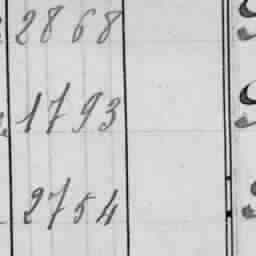 2868
1793
2754